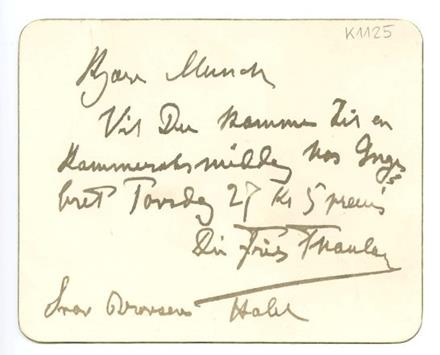 K1125
Kjære Munch
Vil Du komme til en
Kammeratsmiddag hos Inge
bret Torsdag 27 Kl 5 precis
Din Frits Thaulow
Svar Hotel